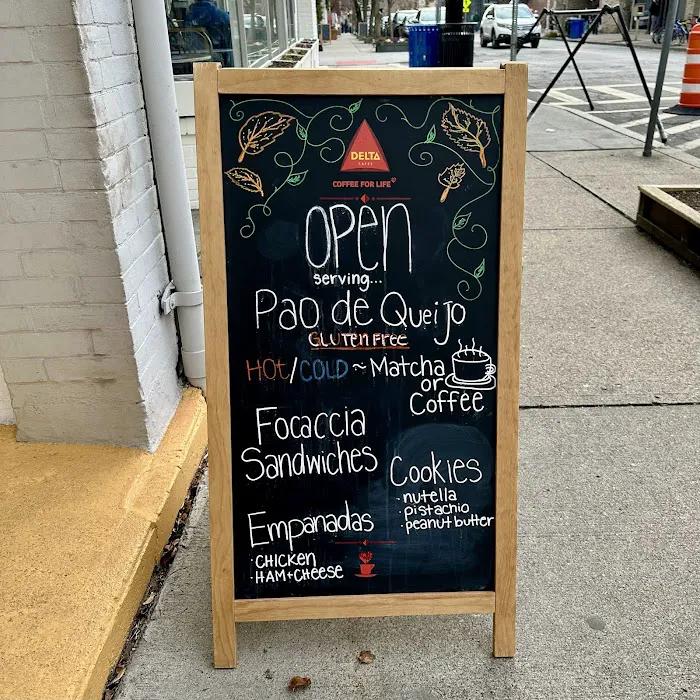 DELTA
CAFÉS
COFFEE FOR LIFE
OPEN
serving...
Pao de Queijo
GLUTEN FREE
HOT/COLD ~ Matcha
or
Coffee
Focaccia
Sandwiches
Cookies
· nutella
· pistachio
· peanut butter
Empanadas
· CHICKEN
· HAM+CHEESE